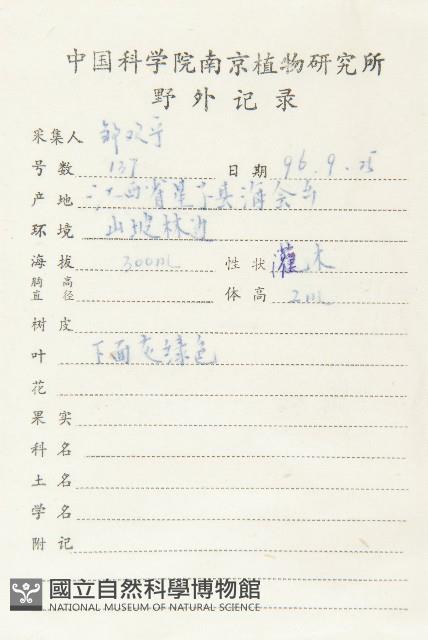 中国科学院南京植物研究所
野外记录
采集人
号数 137 日期 96.9.25
产地 江西省星子县海会寺
环境 山坡林边
海拔 300m 性状 灌木
胸高直径 体高 2m
树皮
叶 下面灰绿色
花
果实
科名
土名
学名
附记
國立自然科學博物館
NATIONAL MUSEUM OF NATURAL SCIENCE